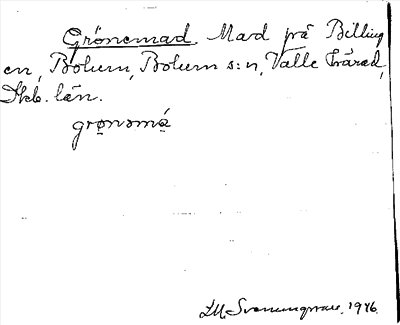 Grönemad. Mad på Billing
en, Bolum, Bolum s:n, Valle härad,
Skb. län.
grǫnəmá̱
LM. Svenungsson. 1946.